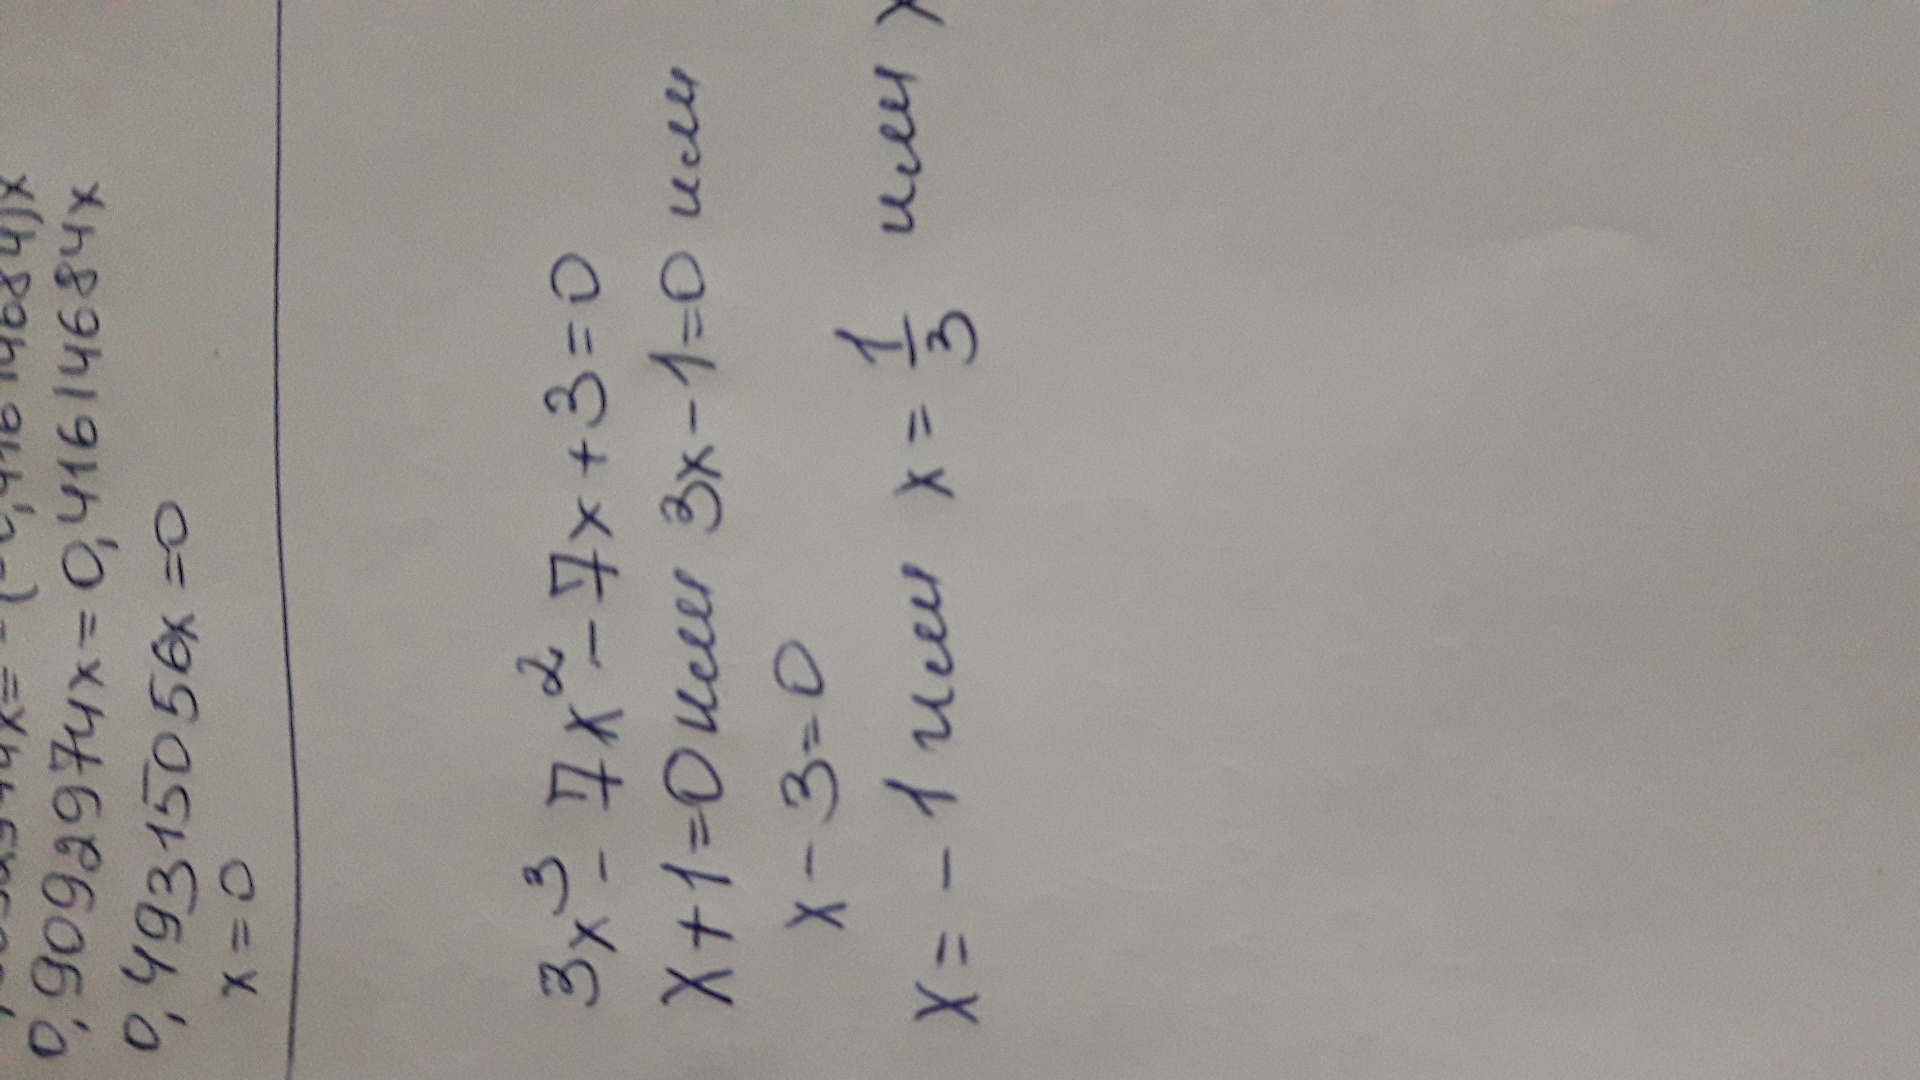 0,9092974x=0,4161468 4x
0,49315056x=0
x=0
3x³-7x²-7x+3=0
x+1=0 или 3x-1=0 или
x-3=0
x=-1 или x=1/3 или x